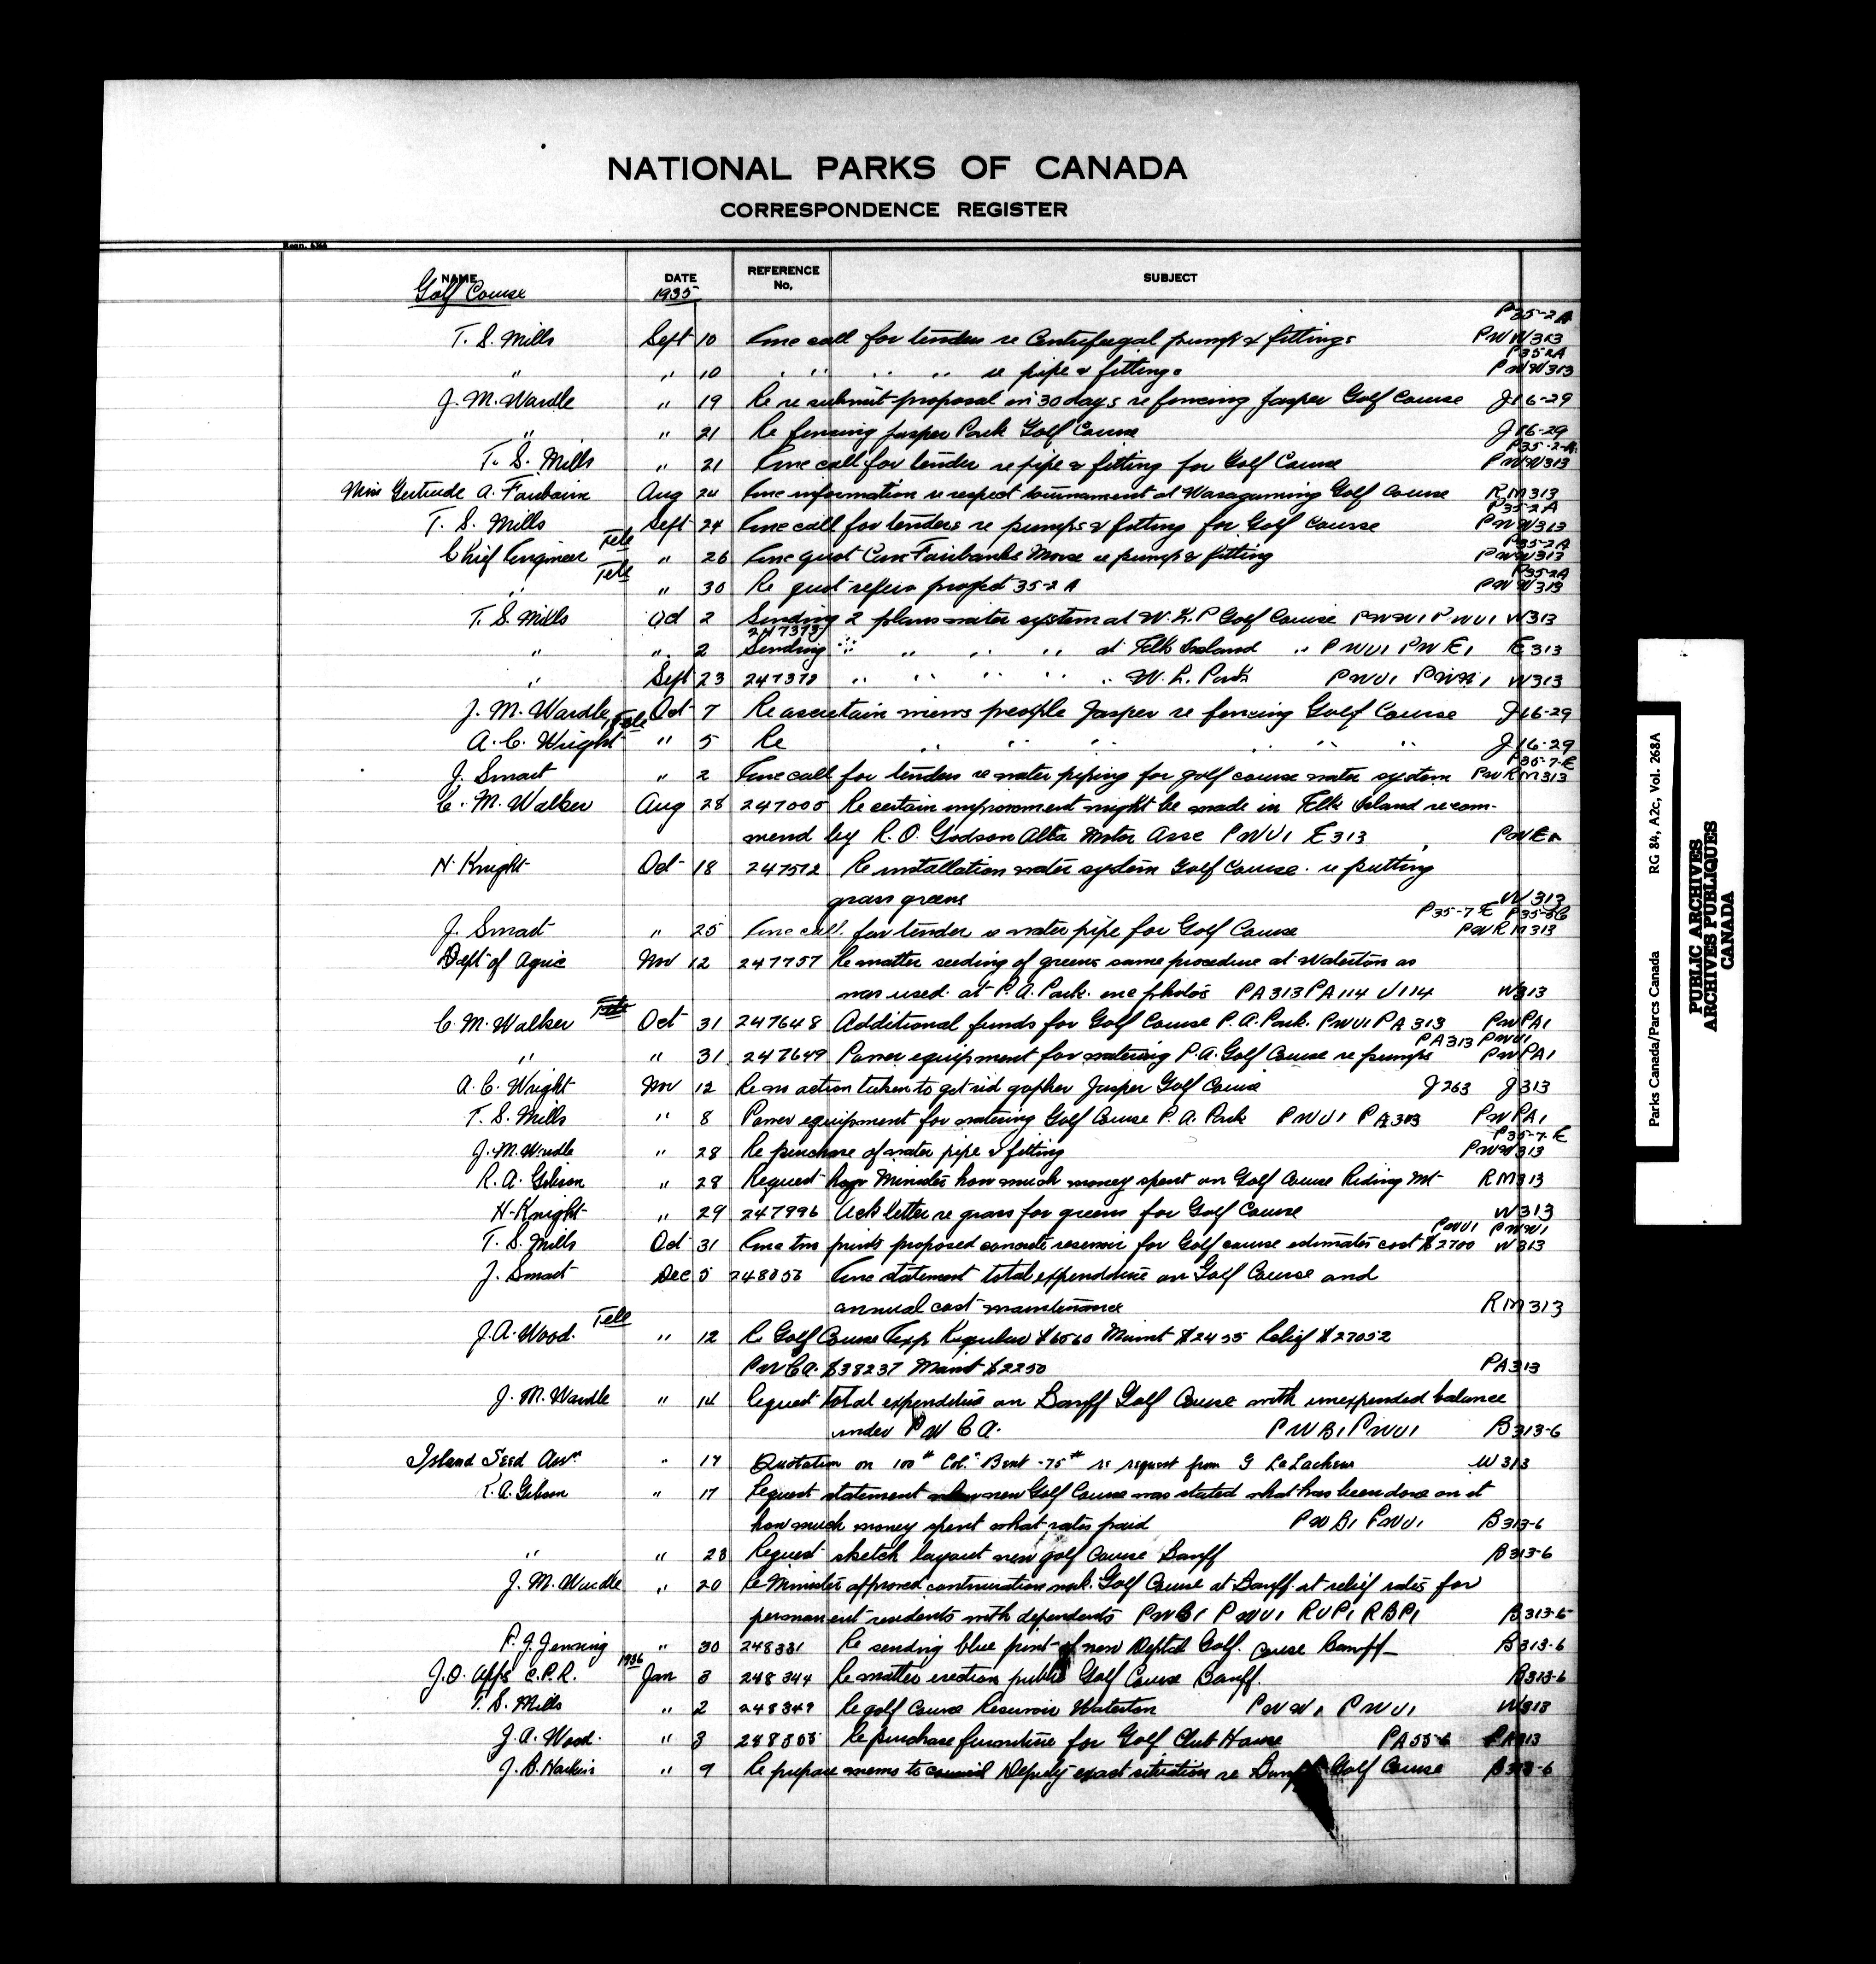 NATIONAL PARKS OF CANADA
CORRESPONDENCE REGISTER
NAME DATE REFERENCE No. SUBJECT
Golf Course 1935
P35-2A
T. S. Mills Sept 10 Enc call for tenders re Centrifugal pump & fittings PWW313
P35-2A
" " 10 " " " " re pipe & fittings PWW313
J. M. Wardle " 19 Re re submit proposal in 30 days re fencing Jasper Golf Course J16-29
" " 21 Re fencing Jasper Park Golf Course J16-29
P35-2-A
T. S. Mills " 21 Enc call for tender re pipe & fitting for Golf Course PWW313
Miss Gertrude A. Fairbairn Aug 24 Enc information re respect tournament at Wasagaming Golf Course RM313
P35-2A
T. S. Mills Sept 24 Enc call for tenders re pumps & fitting for Golf Course PWW313
P35-2A
Chief Engineer Tele " 26 Enc quot Can Fairbanks Morse re pump & fitting PWW313
P35-2A
" Tele " 30 Re quot refers project 35-2A PWW313
T. S. Mills Oct 2 Sending 2 plans water system at W. L. P Golf Course PWW1 PWU1 W313
247373
" " 2 Sending " " " " at Elk Island " PWU1 PWE1 E313
" Sept 23 247372 " " " " " W. L. Park PWU1 PWW1 W313
J. M. Wardle Oct 7 Re ascertain views people Jasper re fencing Golf Course J16-29
A. C. Wright Tele " 5 Re " " " " " " J16-29
P35-7-E
J. Smart " 2 Enc call for tenders re water piping for golf course water system PWRM313
C. M. Walker Aug 28 247005 Re certain improvment might be made in Elk Island recom-
mend by R. O. Godson Alta Motor Asse PWU1 E313 PWE1
H. Knight Oct 18 247512 Re installation water system Golf Course. re putting
grass greens W313
P35-7E
J. Smart " 25 Enc call for tender re water pipe for Golf Course PWRM313
Dept of Agric Nov 12 247757 Re matter seeding of greens same procedure at Waterton as
was used at P. A. Park. enc photos PA313 PA114 U114 W313
C. M. Walker Oct 31 247648 Additional funds for Golf Course P. A. Park. PWU1 PA313 PWPA1
PA313 PWU1
" " 31 247649 Power equipment for watering P. A. Golf Course re pumps PWPA1
A. C. Wright Nov 12 Re no action taken to get rid gopher Jasper Golf Course J263 J313
T. S. Mills " 8 Power equipment for watering Golf Course P. A. Park PWU1 PA313 PWPA1
P35-7-E
J. M. Wardle " 28 Re purchase of water pipe & fitting PWW313
R. A. Gibson " 28 Request Minister how much money spent on Golf Course Riding Mt RM313
H. Knight " 29 247996 Ack letter re grass for greens for Golf Course W313
PWU1 PWW1
T. S. Mills Oct 31 Enc two prints proposed concrete reservoir for Golf course estimates cost $2700 W313
J. Smart Dec 5 248056 Enc statement total expenditure on Golf Course and
annual cost maintenance RM313
J. A. Wood. Tele " 12 Re Golf Course Exp Regular $6560 Maint $2455 Relief $27052
PWCA. $38237 Maint $2250 PA313
J. M. Wardle " 14 Request total expenditures on Banff Golf Course with unexpended balance
under PWCA. PWB1 PWU1 B313-6
Island Seed Assn " 17 Quotation on 100# Col. Bent -75# re request from G LeLacheur W313
R. A. Gibson " 17 Request statement new Golf Course was stated what has been done on it
how much money spent what rates paid PWB1 PWU1 B313-6
" " 23 Request sketch layout new golf Course Banff B313-6
J. M. Wardle " 20 Re Minister approved continuation work. Golf Course at Banff at relief rates for
permanent residents with dependents PWB1 PWU1 RUP1 RBP1 B313-6
P. J. Jenning " 30 248331 Re sending blue print of new Deptal Golf. Course Banff B313-6
1936
J. O. Apps C.P.R. Jan 3 248344 Re matter erection public Golf Course Banff. B313-6
T. S. Mills " 2 248349 Re golf Course Reservoir Waterton PWW1 PWU1 W313
J. A. Wood. " 3 248305 Re purchase furniture for Golf Club House PA55-6 PA313
J. B. Harkin " 9 Re prepare memo to Deputy exact situation re Banff Golf Course B313-6
Parks Canada/Parcs Canada RG 84, A2c, Vol. 268A
PUBLIC ARCHIVES
ARCHIVES PUBLIQUES
CANADA